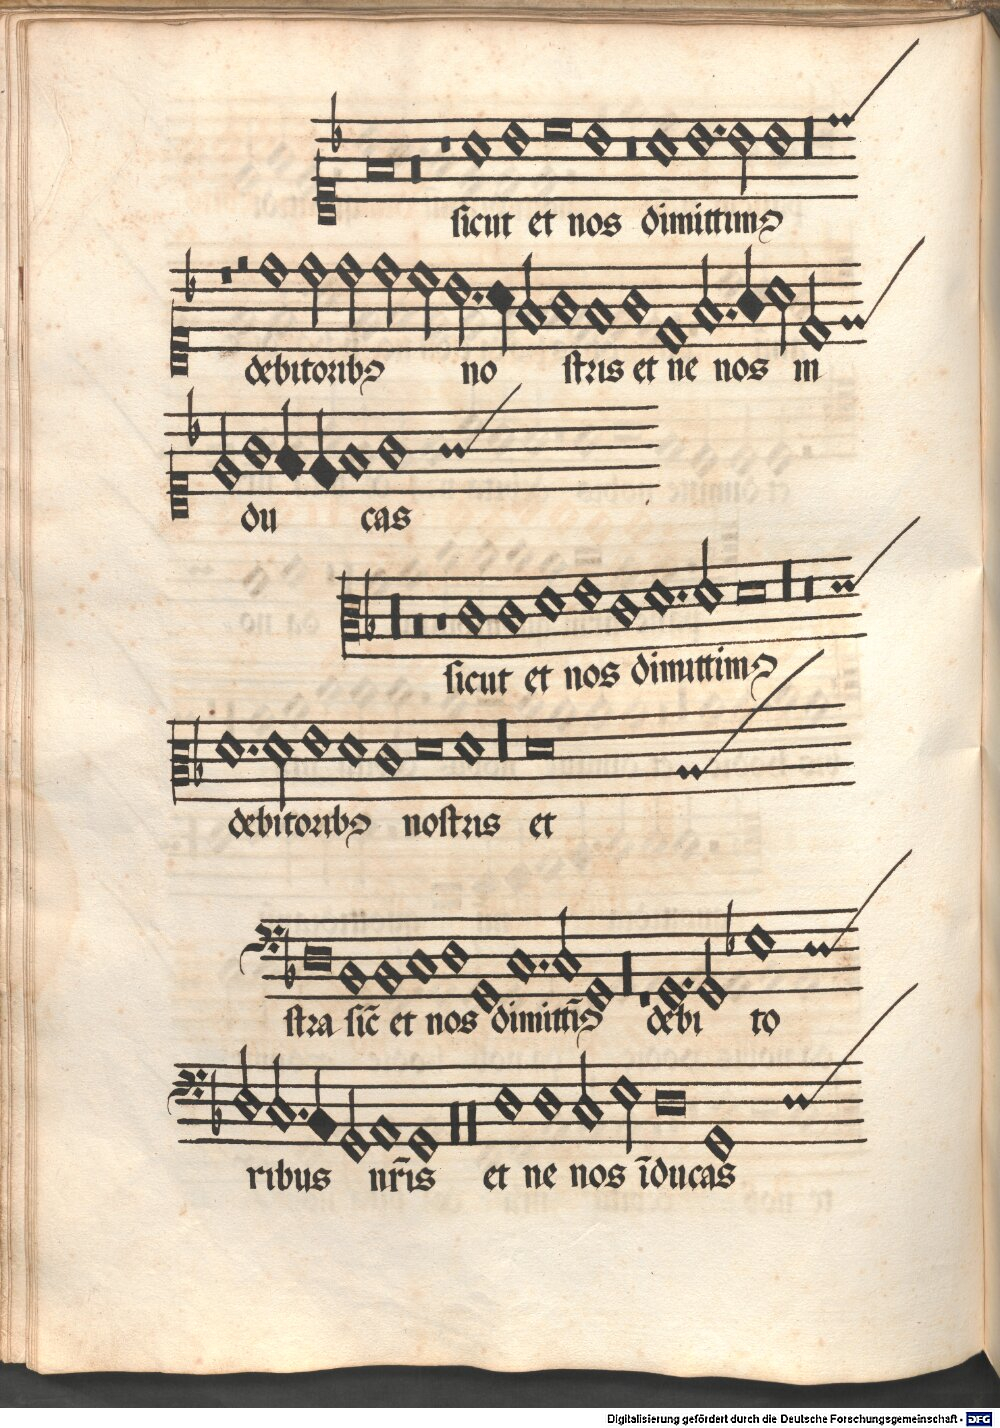 sicut et nos dimittimꝰ
debitoribꝰ no stris et ne nos in
du cas
sicut et nos dimittimꝰ
debitoribꝰ nostris et
stra sic̄ et nos dimittīꝰ debi to
ribus nr̄is et ne nos īducas
Digitalisierung gefördert durch die Deutsche Forschungsgemeinschaft - DFG